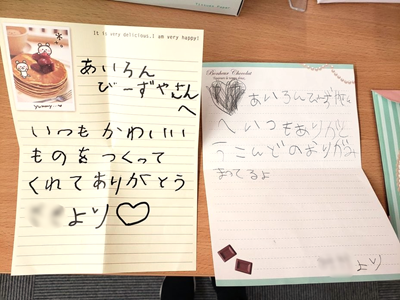 It is very delicious.I am very happy!
yummy
あいろん
びーずやさん
へ
いつもかわいい
ものをつくって
くれてありがとう
より♡
Bonheur Chocolat
あいろんびーずやさん
へいつもありがと
うこんどのおりがみ
まってるよ
より